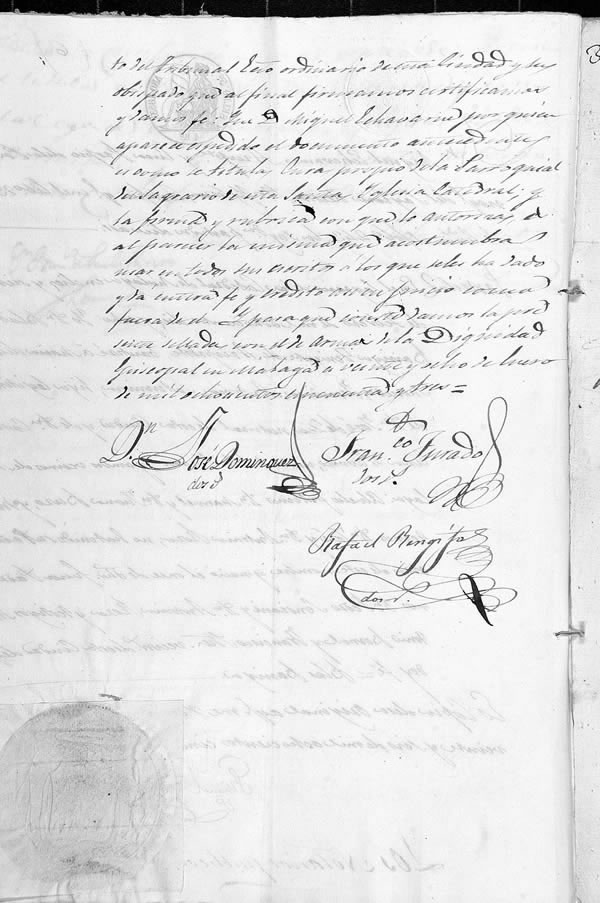 to del Tribunal Ecco ordinario de esta Ciudad y su
obispado que al final firmamos certificamos
y damos fe: Que Dn Miguel Echavarria por quien
aparece espedido el documento antecedente
es como se titula Cura propio de la Parroquial
del Sagrario de esta Santa Yglesia Catedral; y
la firma y rubrica con que lo autoriza es
al parecer la misma que acostumbra
usar en todos sus escritos á los que se les ha dado
y da entera fe y credito asi en Juicio como
fuera de el. Y para que conste damos la pre
sente sellada con el de armas de la Dignidad
Episcopal en Malaga a veinte y ocho de Enero
de mil ochocientos cincuenta y tres =
Dn José Dominguez
Dn Franco Jurado
Rafael Rengifo